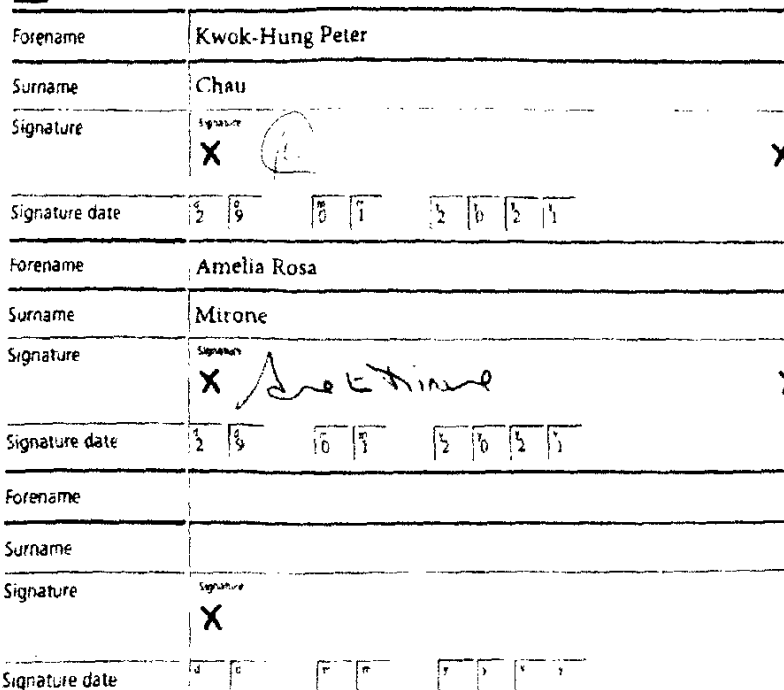 Forename Kwok-Hung Peter
Surname Chau
Signature Signature
X X
Signature date d2 d9 m0 m1 y2 y0 y2 y1
Forename Amelia Rosa
Surname Mirone
Signature Signature
X X
Signature date d2 d9 m0 m1 y2 y0 y2 y1
Forename
Surname
Signature Signature
X
Signature date d d m m y y y y